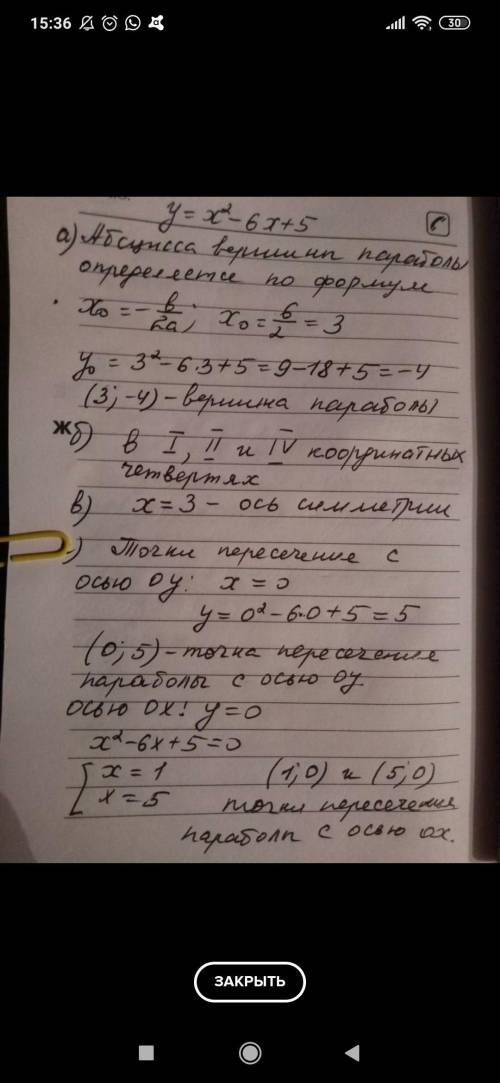 15:36
30
y = x² - 6x + 5
а) Абсцисса вершинп параболы
определяется по формум
x₀ = - в/2a; x₀ = 6/2 = 3
y₀ = 3² - 6·3 + 5 = 9 - 18 + 5 = -4
(3; -4) - вершина параболы
Жб) в I, II и IV координатных
четвертях
в) x = 3 - ось симметрии
) Точки пересечение с
осью OY: x = 0
y = 0² - 6·0 + 5 = 5
(0; 5) - точка пересечения
параболы с осью OY.
осью OX! y = 0
x² - 6x + 5 = 0
[ x = 1 (1; 0) и (5; 0)
x = 5 точки пересечения
параболп с осью ox.
ЗАКРЫТЬ